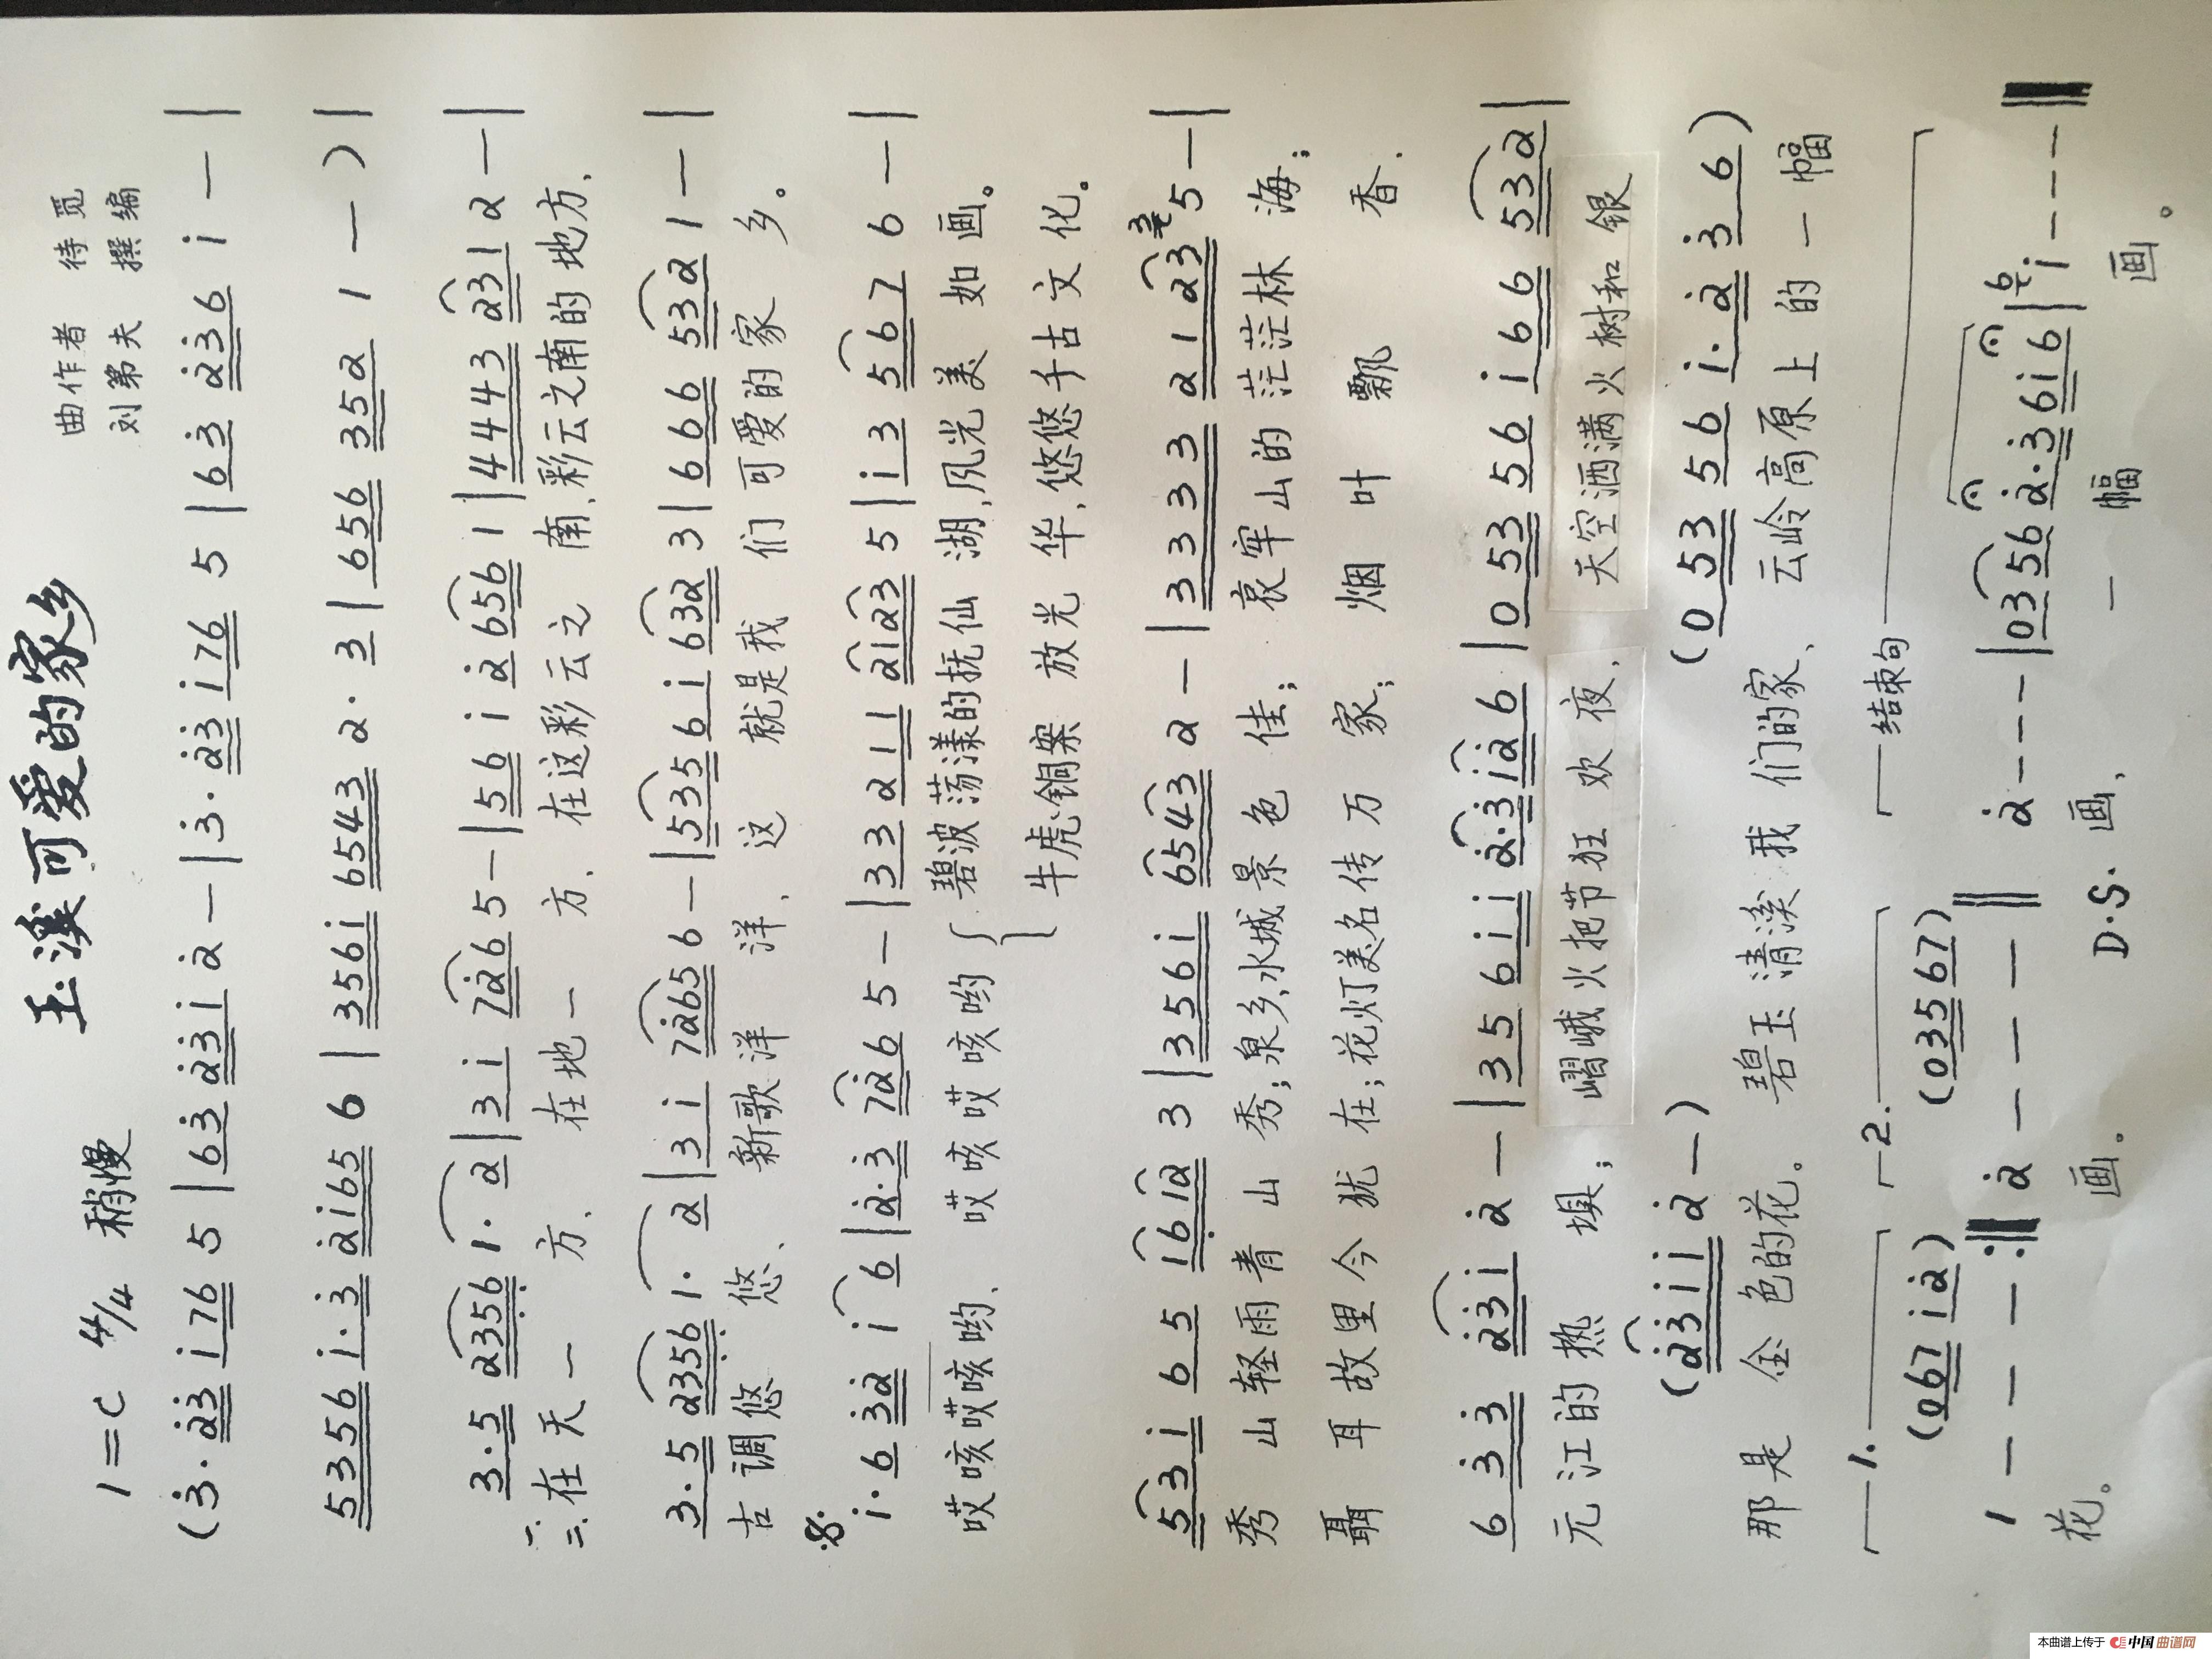 玉溪可爱的家乡
曲作者 待觅
1=C 4/4 稍慢 刘第夫 撰编
(3·23 i76 5 |63 23i 2 — |3·23 i76 5 |63 236 i — |
5356 i·3 2i65 6 |356i 6543 2· 3 |656 352 1 — ) |
3·5 2356 1· 2 |3 i 726 5 — |56 i 2 656 1 |4443 231 2 — |
一.二.在天一方、在地一方、在这彩云之南,彩云之南的地方、
3·5 2356 1· 2 |3 i 7265 6 — |535 6 i 632 3 |6 66 532 1 — |
古调悠悠、新歌洋洋、这就是我们可爱的家乡。
i·6 32 i 6 |2·3 726 5 — |33 211 2123 5 |i 3 567 6 — |
哎咳哎咳哟、哎咳哎咳哟{碧波荡漾的抚仙湖,风光美如画。
牛虎铜案放光华,悠悠千古文化。
53i 65 1612 3 |356i 6543 2 — |3333 21 23 5 — |
秀山轻雨青山秀;泉乡,水城景色佳;哀牢山的茫茫林海;
聶耳故里今犹在;花灯美名传万家;烟叶飘香.
6 33 23i 2 — |35 6ii 2·3 i26 |0 53 56 i 66 532 |
元江的热埧;嶍峨火把节狂欢夜、天空洒满火树和银
(23ii 2 —) (0 53 56 i·2 3 6)
那是金色的花。碧玉清溪我们的家、云岭高原上的一幅
1. 2. 结束句
(067 i2) (03567)
1 — — — :‖ 2 — — — ‖ 2 — — — |0356 2·36i6 |i — — — ‖
花。画。D.S. 画、一幅画。
本曲谱上传于 中国曲谱网